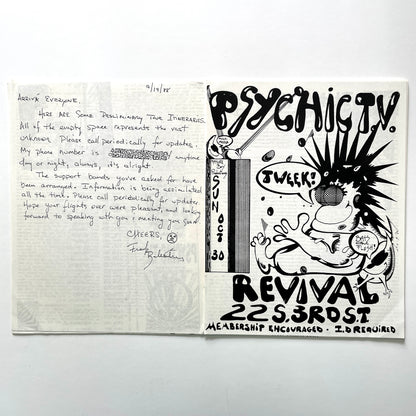 9/19/88
ARRIVÁ EVERYONE,
HERE ARE SOME PRELIMINARY TOUR ITINERARIES.
All of the empty space represents the vast
unknown. Please call periodically for updates.
My phone number is anytime
day or night, always, it's alright.
The support bands you've asked for have
been arranged. Information is being assimilated
all the time. Please call periodically for updates.
Hope your flights over were pleasant, and looking
forward to speaking with you & meeting you soon!
CHEERS,
PSYCHIC T.V.
SUN OCT 30
TWEEK!
REVIVAL
22 S. 3RD ST
MEMBERSHIP ENCOURAGED · I.D REQUIRED